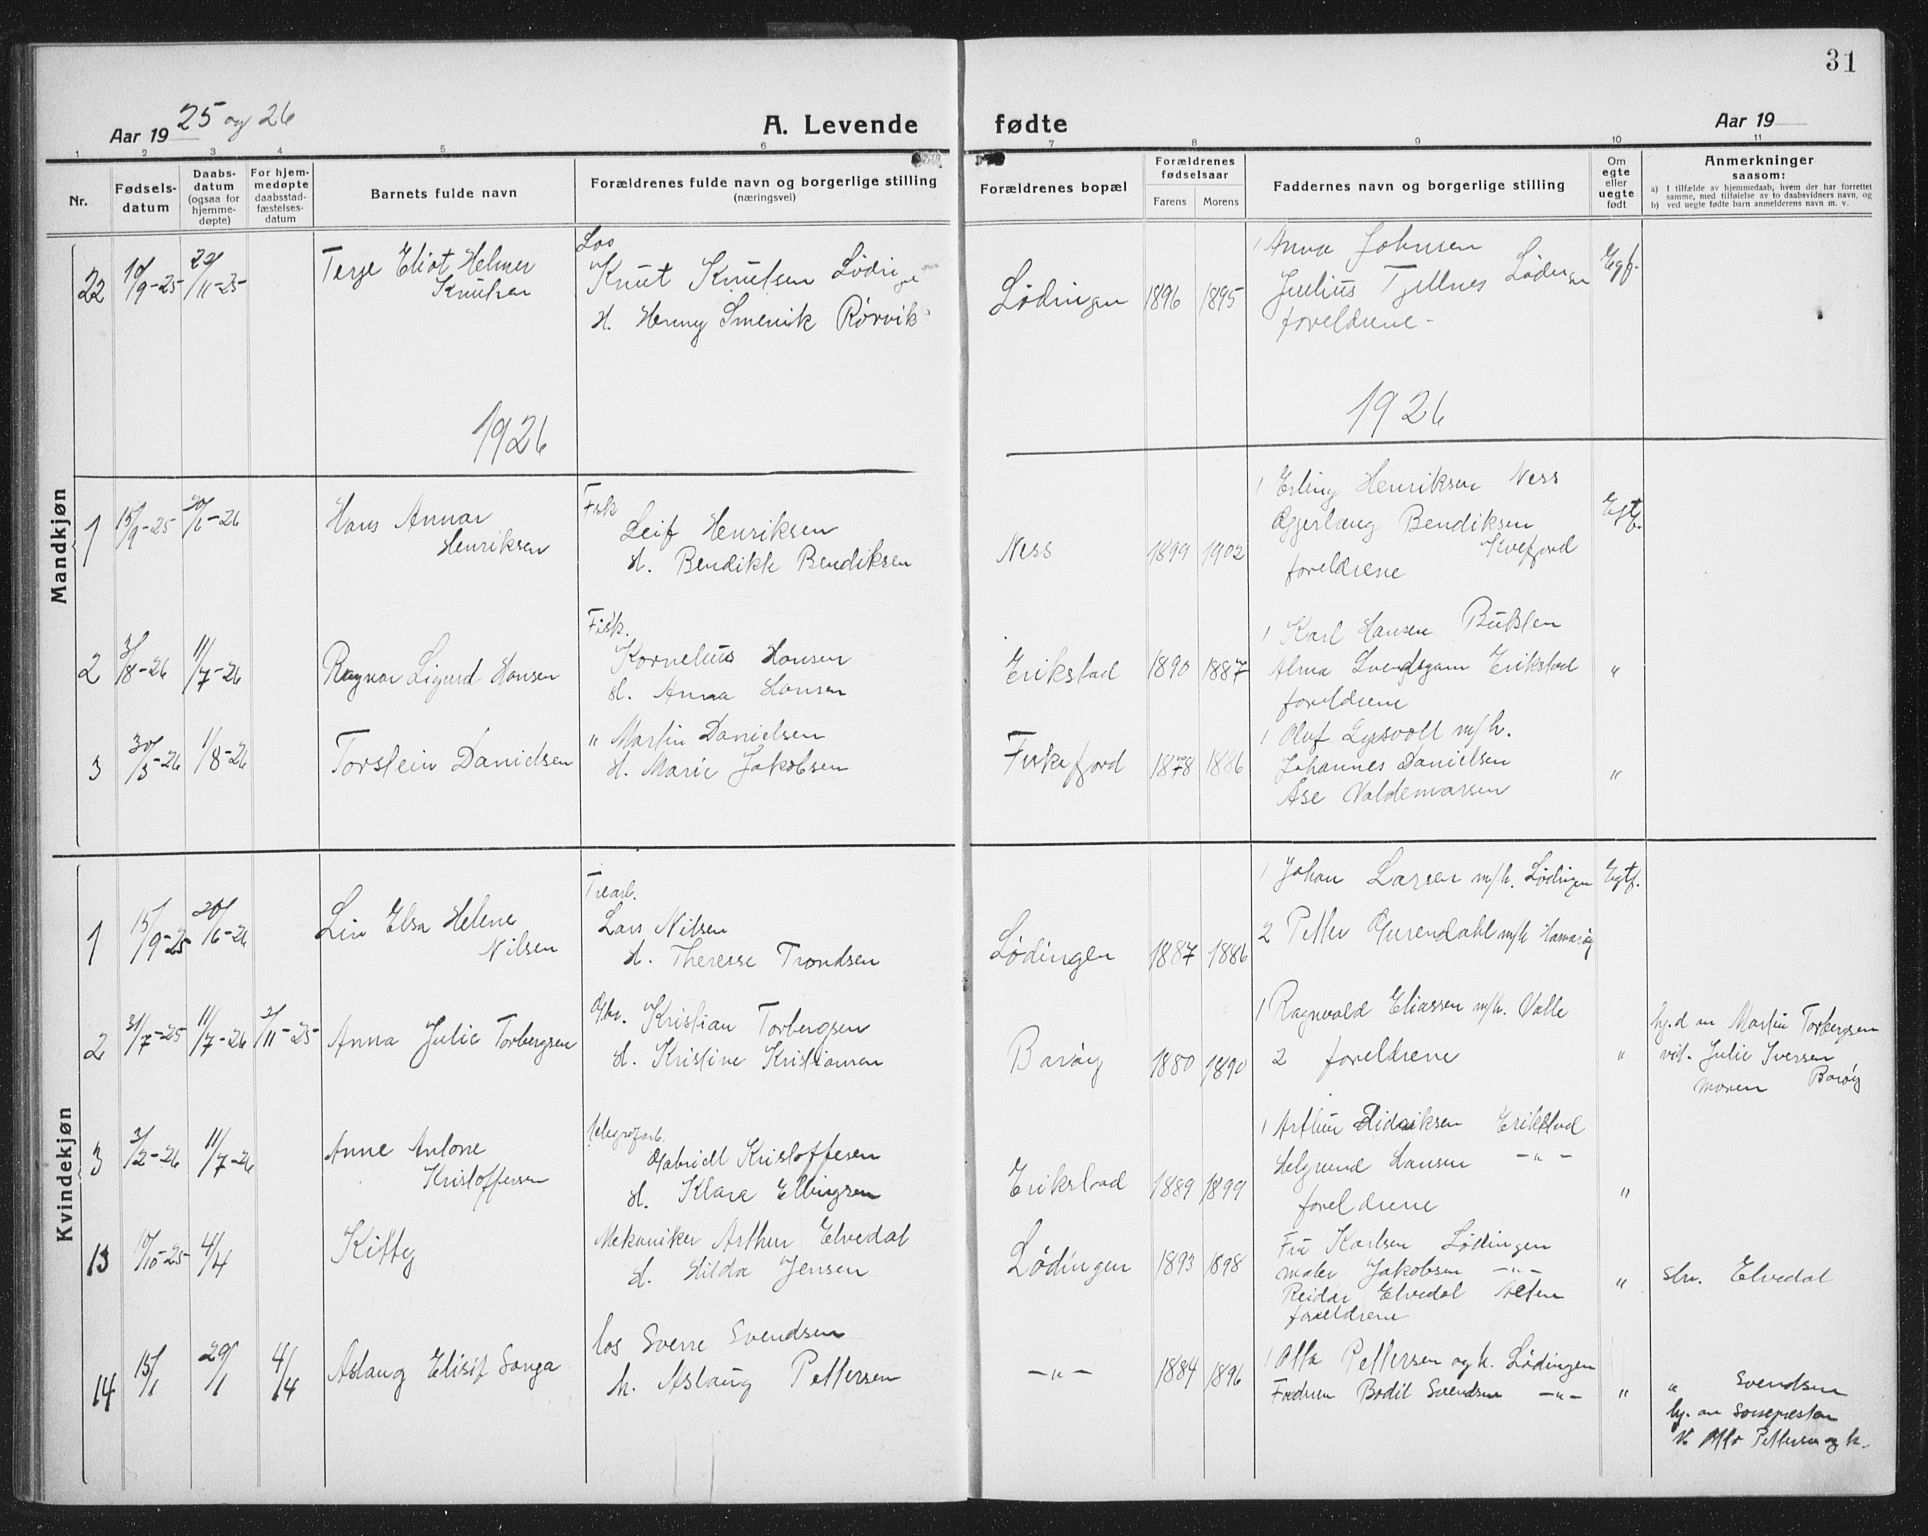 31
Aar 19 25 og 26
A. Levende fødte
Aar 19
1 2 3 4 5 6 7 8 9 10 11
Nr.
Fødsels-
datum
Daabs-
datum
(ogsaa for
hjemme-
døpte)
For hjem-
medøpte
daabsstad-
fæstelses-
datum
Barnets fulde navn
Forældrenes fulde navn og borgerlige stilling
(næringsvei)
Forældrenes bopæl
Forældrenes
fødselsaar
Farens Morens
Faddernes navn og borgerlige stilling
Om
egte
eller
uegte
født
Anmerkninger
saasom:
a) I tilfælde av hjemmedaab, hvem der har forrettet
samme, med tilføielse av to daabsvidners navn, og
b) ved uegte fødte barn anmelderens navn m. v.
Mandkjøn
22 10/9-25 22/11-25
Terje Eliot Helmer
Knutsen
Los
Knut Knutsen Lødingen
H. Henny Smenik Rørvik
Lødingen 1896 1895
1 Anna Johnsen
Julius Tjellnes Lødingen
foreldrene
Egtf.
1926
1926
1 15/9-25 20/6-26
Hans Annar
Henriksen
Fisk
Leif Henriksen
H. Bendikte Bendiksen
Ness 1899 1902
1 Erling Henriksen Ness
Bendiksen
Kvefjord
foreldrene
Egtf.
2 3/8-26 11/7-26
Ragnar Sigurd Hansen
Fisk.
Kornelius Hansen
H. Anna Hansen
Erikstad 1890 1887
1 Karl Hansen
Alma Erikstad
foreldrene
"
3 30/5-26 1/8-26
Torstein Danielsen
" Martin Danielsen
H. Marie Jakobsen
Fiskefjord 1878 1886
1 Oluf Lysvoll m/h.
Johannes Danielsen
Åse Valdemarsen
"
Kvindekjøn
1 15/9-25 20/6-26
Lin Elsa Helene
Nilsen
Trearb.
Lars Nilsen
H. Therese Trondsen
Lødingen 1887 1886
1 Johan Larsen m/h. Lødingen
2 Petter m/h Hamarøy
Egtf.
2 31/7-25 11/7-26 2/11-25
Anna Julie Torbergsen
Gbr. Kristian Torbergsen
H. Kristine Kristiansen
Barøy 1880 1890
1 Ragnvald Eliassen m/h. Valle
2 foreldrene
"
hj.d av Martin Torbergsen
vit. Julie Iversen
moren Barøy
3 3/2-26 11/7-26
Anne Antone
Kristoffersen
telegrafarb.
Gabriell Kristoffersen
H. Klara Ellingsen
Erikstad 1889 1899
1 Arthur Didriksen Erikstad
Hansen -"-
foreldrene
"
13 10/10-25 4/4
Kitty
Mekaniker Arthur Elvedal
H. Hilda Jensen
Lødingen 1893 1898
Fru Karlsen Lødingen
maler Jakobsen -"-
Reidar Elvedal Alten
foreldrene
"
sln. Elvedal
14 15/1 29/1 4/4
Aslaug Elisif Sonja
los Sverre Svendsen
h. Aslaug Pettersen
-"- 1884 1896
1 Otto Pettersen og h. Lødingen
Bodil Svendsen -"-
"
" Svendsen
hj. av Sognepresten
v. Otto Pettersen og h.